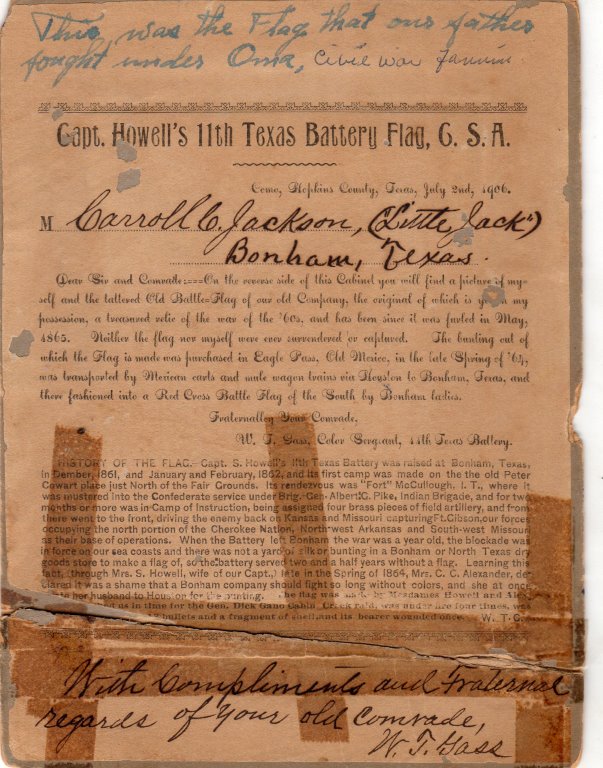 This was the Flag that our father
fought under Oma, Civil War Fannin
Capt. Howell's 11th Texas Battery Flag, C. S. A.
Como, Hopkins County, Texas, July 2nd, 1906.
M Carroll C. Jackson, ("Little Jack")
Bonham, Texas.
Dear Sir and Comrade:===On the reverse side of this Cabinet you will find a picture of my=
self and the tattered Old Battle=Flag of our old Company, the original of which is yet in my
possession, a treasured relic of the war of the '60s, and has been since it was furled in May,
1865. Neither the flag nor myself were ever surrendered or captured. The bunting out of
which the Flag is made was purchased in Eagle Pass, Old Mexico, in the late Spring of '64,
was transported by Mexican carts and mule wagon trains via Houston to Bonham, Texas, and
there fashioned into a Red Cross Battle Flag of the South by Bonham ladies.
Fraternally Your Comrade,
W. T. Gass, Color Sergeant, 11th Texas Battery.
HISTORY OF THE FLAG.-Capt. S. Howell's 11th Texas Battery was raised at Bonham, Texas,
in Dember, 1861, and January and February, 1862, and its first camp was made on the the old Peter
Cowart place just North of the Fair Grounds. Its rendezvous was "Fort" McCullough, I. T., where it
was mustered into the Confederate service under Brig.-Gen. Albert G. Pike, Indian Brigade, and for two
months or more was in Camp of Instruction, being assigned four brass pieces of field artillery, and from
there went to the front, driving the enemy back on Kansas and Missouri capturing Ft. Gibson, our forces
occupying the north portion of the Cherokee Nation, Northwest Arkansas and South-west Missouri
as their base of operations. When the Battery left Bonham the war was a year old, the blockade was
in force on our sea coasts and there was not a yard of silk or bunting in a Bonham or North Texas dry
goods store to make a flag of, so the battery served two and a half years without a flag. Learning this
fact, (through Mrs. S. Howell, wife of our Capt.,) late in the Spring of 1864, Mrs. C. C. Alexander, de-
clared it was a shame that a Bonham company should fight so long without colors, and she at once
her husband to Houston for the bunting. The flag was made by Mesdames Howell and
us in time for the Gen. Dick Gano Cabin Creek raid, was under fire four times, was
bullets and a fragment of shell, and its bearer wounded once. W. T. G.
With Compliments and Fraternal
regards of Your old Comrade,
W. T. Gass